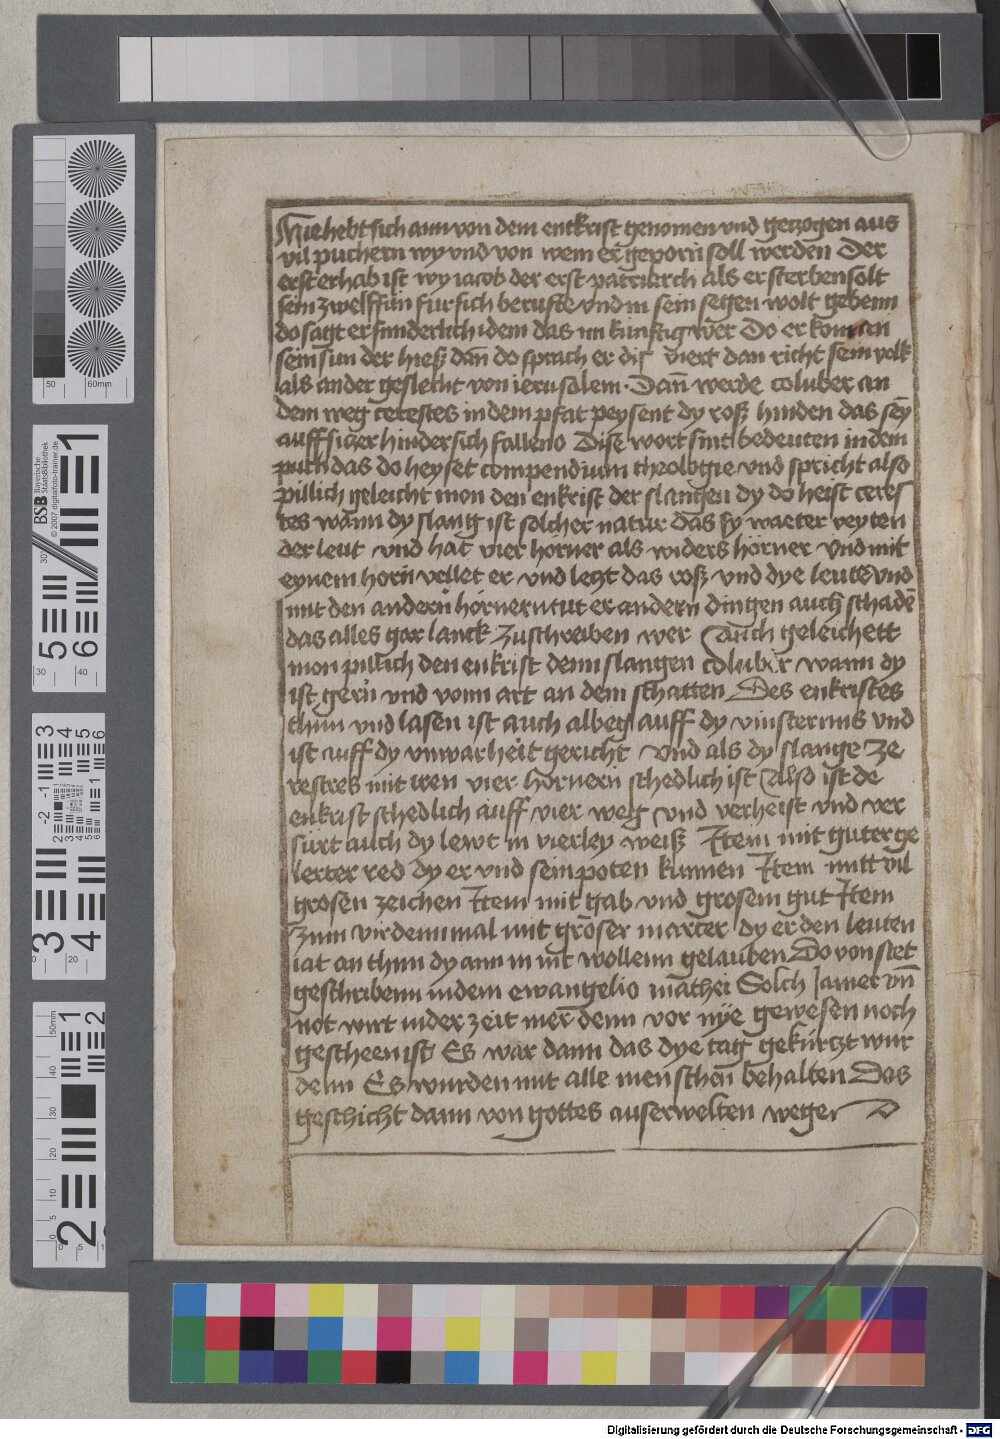 Hie hebt sich ann von dem entkrist genomen vnd getzogen aus
vil puchern wy vnd von wem er geporn soll werden Der
erst erhab ist wy iacob der erst patriarch als er sterben solt
sein zwelff sün fur sich beruffte vnd in sein segen wolt gebenn
do sagt er sunderlich idem das im kunftig wer Do er kom an
sein sun der hieß dan do sprach er diß viert dan richt sein volk
als ander geslecht von ierusalem. Dann werde coluber an
dem weg cerestes in dem pfat peysent dy roß hinden das sey
auffsitzer hinder sich fallend Dise wort sint bedeuten in dem
puch das do heyset compendium theologie vnd spricht also
pillich geleicht mon den enkrist der slangen dy do heist ceres
tes wann dy slang ist solcher natur das sy waeter reyten
der leut vnd hat vier horner als widers horner Vnd mit
eynem horn vellet er vnd letzt das roß vnd dye leute vnd
mit den andern hörnern tut er andern dingen auch schadē
das alles gar lanck zu schreiben wer Auch geleichett
mon pillich den enkrist denn slangen coluber wann dy
ist gern vnd vonn art an dem schatten Des enkristes
thun vnd lasen ist auch albeg auff dy vinsternus vnd
ist auff dy vnwarheit gericht Vnd als dy slange ze
restres mit iren vier hornern schedlich ist Also ist de
enkrist schedlich auff vier weg vnd verheist vnd ver
fürt auch dy lewt in vierley weiß Item mit guter ge
lerter red dy er vnd sein poten kunnen Item mitt vil
grosen zeichen Item mit gab vnd grosem gut Item
Zum virden mal mit groser marter dy er den leuten
lat an thun dy ann in nit wollenn gelauben Do von stet
geschribenn in dem ewangelio mathei Solch Jamer vn̄
not wirt in der zeit mer denn vor nye gewesen noch
gescheen ist Es war dann das dye tag gekürtzt wur
denn Es wurden nit alle menschen behalten Das
geschicht dann von gottes auserwelten wegen
50
60mm
BSB Bayerische
StaatsBibliothek
© 2007 digitalfoto-trainer.de
Digitalisierung gefördert durch die Deutsche Forschungsgemeinschaft - DFG